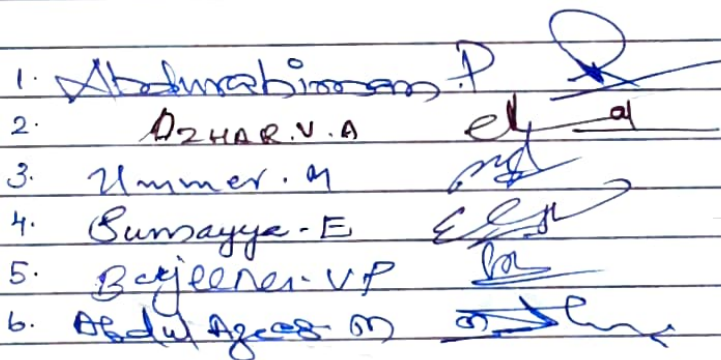 1. Abdurahiman. P
2. AZHAR. V. A
3. Ummer. M
4. Sumayya - E
5. Barjeena - VP
6. Abdul Azeez M